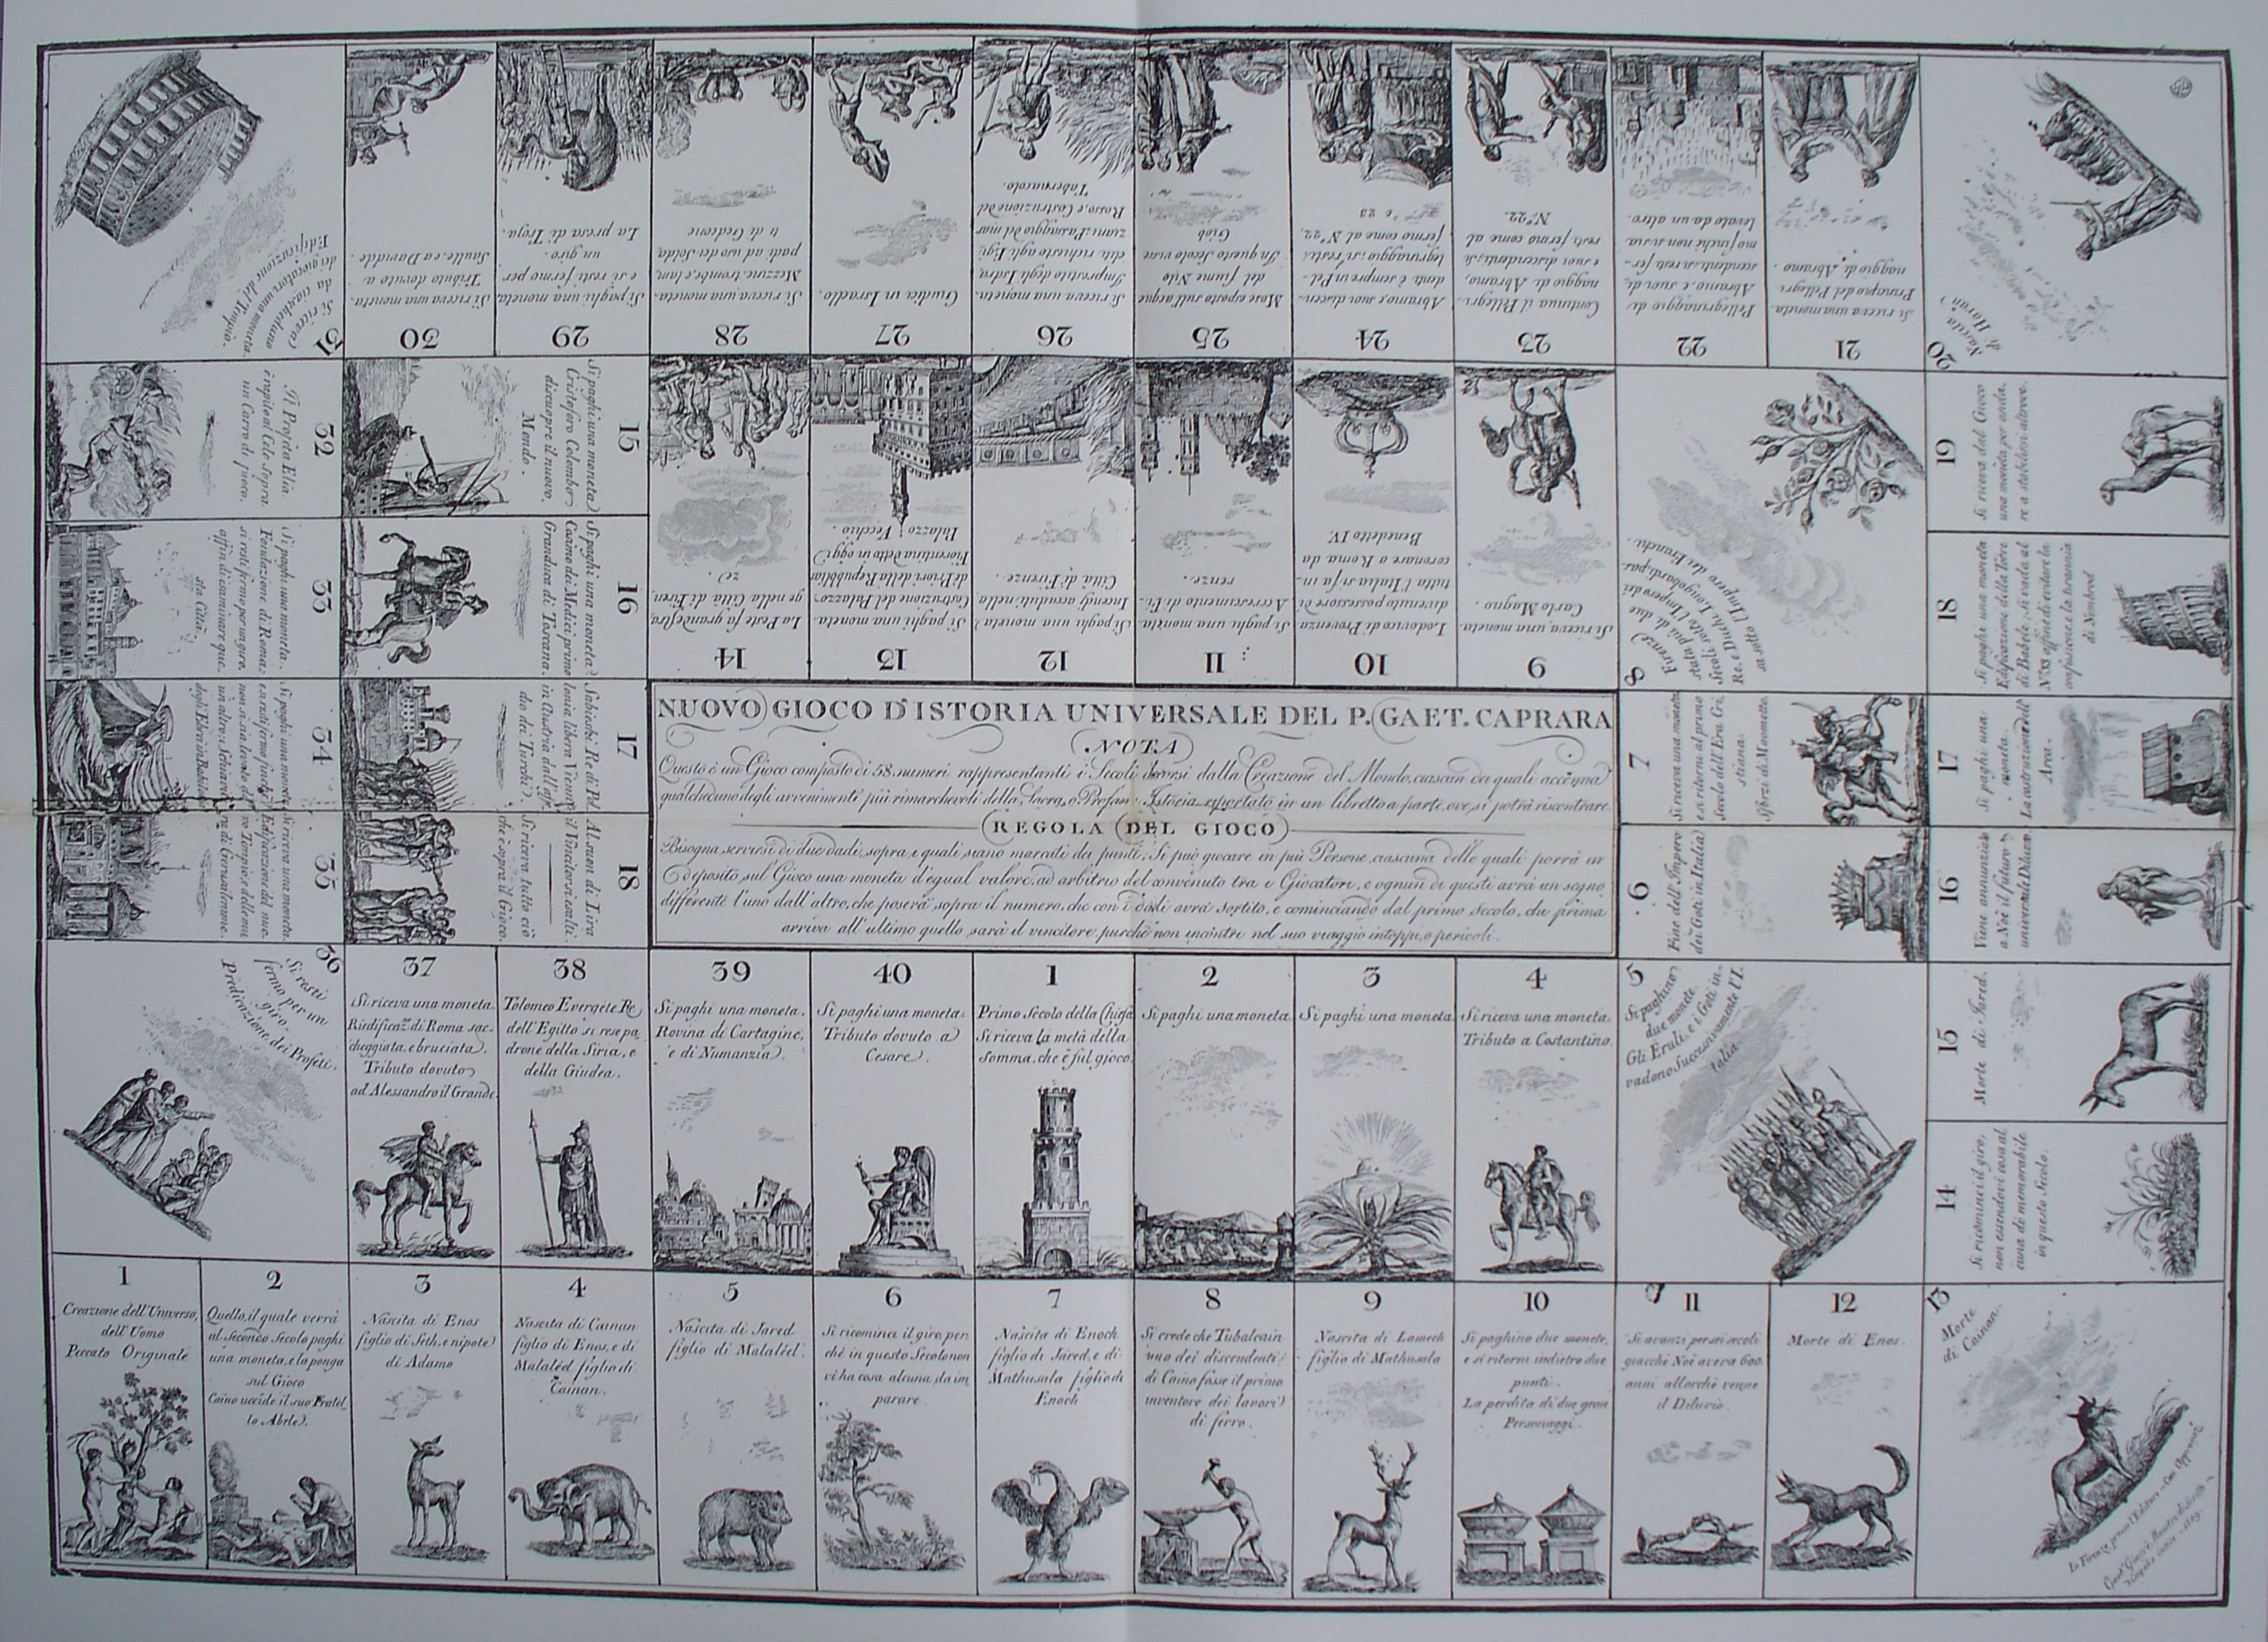 NUOVO GIOCO D'ISTORIA UNIVERSALE DEL P. GAET. CAPRARA
NOTA
Questo è un Gioco composto di 58. numeri rappresentanti i Secoli decorsi dalla Creazione del Mondo, ciascun dei quali accenna
qualcheduno degli avvenimenti più rimarchevoli della Sacra, o Profana Istoria riportato in un libretto a parte, ove si potrà riscontrare.
REGOLA DEL GIOCO
Bisogna servirsi di due dadi, sopra i quali siano marcati dei punti; Si può giocare in più Persone, ciascuna delle quali porrà in
deposito sul Gioco una moneta d'equal valore, ad arbitrio del convenuto tra i Giocatori, e ognun di questi avrà un segno
differente l'uno dall'altro, che poserà sopra il numero, che con i dadi avrà sortito, e cominciando dal primo secolo, chi prima
arriva all'ultimo quello sarà il vincitore, purchè non incontri nel suo viaggio intoppi, o pericoli.
1
Creazione dell'Universo,
dell'Uomo
Peccato Originale
2
Quello, il quale verrà
al Secondo Secolo paghi
una moneta, e la ponga
sul Gioco
Caino uccide il suo Fratel-
lo Abele.
3
Nascita di Enos
figlio di Seth, e nipote
di Adamo
4
Nascita di Cainan
figlio di Enos, e di
Malaléel figlio di
Cainan.
5
Nascita di Jared
figlio di Malaléel.
6
Si ricominci il giro, per-
chè in questo Secolo non
vi ha cosa alcuna da im
parare
7
Nascita di Enoch
figlio di Jared, e di
Mathusala figlio di
Enoch
8
Si crede che Tubalcain
uno dei discendenti
di Caino fosse il primo
inventore dei lavori
di ferro.
9
Nascita di Lamech
figlio di Mathusala
10
Si paghino due monete,
e si ritorni indietro due
punti.
La perdita di due gran
Personaggi.
11
Si avanzi per sei secoli
giacchè Noè aveva 600.
anni allorchè venne
il Diluvio.
12
Morte di Enos.
13
Morte
di Cainan.
14
Si ricominci il giro,
non essendovi cosa al-
cuna di memorabile
in questo Secolo.
15
Morte di Jared.
16
Viene annunziato
a Noè il futuro
universale Diluvio
17
Si paghi una
moneta.
La costruzione dell'
Arca.
18
Si paghi una moneta
Edificazione della Torre
di Babele. Si vada al
affine di evitare la
confusione, e la tirannia
di Nembrod
19
Si riceva dal Gioco
una moneta per anda-
re a stabilirsi altrove.
20
Nascita
di
21
Si riceva una moneta
Principio del Pellegri-
naggio di Abramo.
22
Pellegrinaggio di
Abramo, e suoi di-
scendenti: si resti fer-
mo finchè non si sia
levato da un altro.
23
Continua il Pellegri-
naggio di Abramo,
e suoi discendenti: si
resti fermo come al
N° 22.
24
Abramo, e suoi discen-
denti è sempre in Pel-
legrinaggio si resti
fermo come al N° 22,
e 23
25
Mosè esposto sull'acque
del fiume Nilo
In questo Secolo visse
Giob
26
Si riceva una moneta.
Imprestito degli Isdra-
eliti richiesto agli Egi-
ziani: Passaggio del mar
Rosso, e Costruzione del
Tabernacolo.
27
Giudici in Israello.
28
Si riceva una moneta.
Mezzine, trombe, e lam-
padi ad uso dei Solda-
ti di Gedeone
29
Si paghi una moneta
e si resti fermo per
un giro.
La presa di Troja.
30
Si riceva una moneta.
Tributo dovuto a
Saulle, e a Davidde.
31
Si riceva
da ciascheduno
dei giocatori una moneta.
Edificazione del Tempio.
32
Il Profeta Elia
è rapito al Cielo sopra
un Carro di fuoco.
33
Si paghi una moneta.
Fondazione di Roma;
si resti fermo per un giro,
affin di esaminare que-
sta Città.
34
Si paghi una moneta
e si resti fermo finchè
non si sia levato da
un altro: Schiavitù
degli Ebrei in Babilonia
35
Si riceva una moneta.
Edificazione del nuo-
vo Tempio, e delle mu
ra di Gerusalemme.
36
Si resti
fermo per un
giro.
Predicazione dei Profeti.
37
Si riceva una moneta.
Riedificaz.e di Roma sac-
cheggiata, e bruciata.
Tributo dovuto
ad Alessandro il Grande
38
Tolomeo Evergete Re
dell'Egitto si rese pa-
drone della Siria, e
della Giudea.
39
Si paghi una moneta.
Rovina di Cartagine,
e di Numanzia.
40
Si paghi una moneta
Tributo dovuto a
Cesare.
1
Primo Secolo della Chiesa
Si riceva la metà della
somma, che è sul gioco.
2
Si paghi una moneta
3
Si paghi una moneta
4
Si riceva una moneta
Tributo a Costantino.
5
Si paghino
due monete.
Gli Eruli, e i Goti in-
vadono successivamente l'I-
talia
6
Fine dell'Impero
dei Goti in Italia
7
Si riceva una moneta
e si ritorni al primo
Secolo dell'Era Cri-
stiana.
Sforzi di Maometto.
8
Firenze
stata più di due
Secoli sotto l'Impero dei
Re, e Duchi Longobardi pas-
sa sotto l'Impero dei Franchi.
9
Si riceva una moneta.
Carlo Magno.
10
Lodovico di Provenza
divenuto possessore di
tutta l'Italia si fa in-
coronare a Roma da
Benedetto IV.
11
Si paghi una moneta
Accrescimento di Fi-
renze.
12
Si paghi una moneta
Incendj accaduti nella
Città di Firenze.
13
Si paghi una moneta.
Costruzione del Palazzo
de' Priori della Repubblica
Fiorentina detto in oggi
Palazzo Vecchio.
14
La Peste fa grande stra-
ge nella Città di Firen-
ze.
15
Si paghi una moneta
Cristoforo Colombo
discuopre il nuovo
Mondo.
16
Si paghi una moneta
Cosimo dei Medici primo
Granduca di Toscana.
17
Sobieski Re di Pol-
lonia libera Vienna
in Austria dall'asse-
dio dei Turchi.
18
Al suon di Lira
il Vincitor si esalti.
Si riceva tutto ciò
che è sopra il Gioco.
In Firenze presso l'Editore